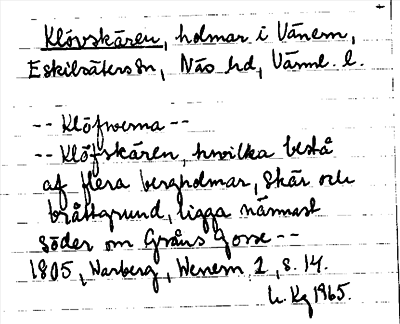 Klövskären, holmar i Vänern,
Eskilsäters sn, Näs hd, Värml. l.
-- Klöfwerna --
-- Klöfskären, hwilka bestå
af flera bergholmar, Skär och
bråttgrund, ligga närmast
Söder om Gråns Gorse --
1805, Warberg, Wenern 2, s. 14.
Kg 1965.